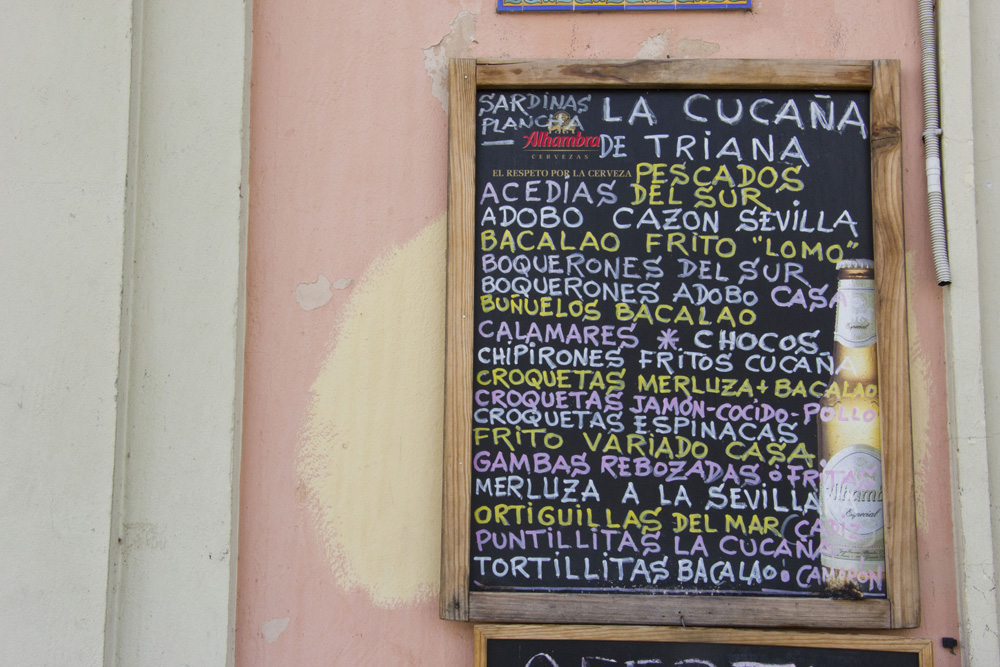 SARDINAS
PLANCHA
LA CUCAÑA
DE TRIANA
Alhambra
CERVEZAS
EL RESPETO POR LA CERVEZA
PESCADOS
DEL SUR
ACEDIAS
ADOBO CAZON SEVILLA
BACALAO FRITO "LOMO"
BOQUERONES DEL SUR
BOQUERONES ADOBO CASA
BUÑUELOS BACALAO
CALAMARES * CHOCOS
CHIPIRONES FRITOS CUCAÑA
CROQUETAS MERLUZA + BACALAO
CROQUETAS JAMÓN-COCIDO-POLLO
CROQUETAS ESPINACAS
FRITO VARIADO CASA
GAMBAS REBOZADAS ó FRITAS
MERLUZA A LA SEVILLA
ORTIGUILLAS DEL MAR CADIZ
PUNTILLITAS LA CUCAÑA
TORTILLITAS BACALAO ó CAMARON
Especial
Alhambra
Especial